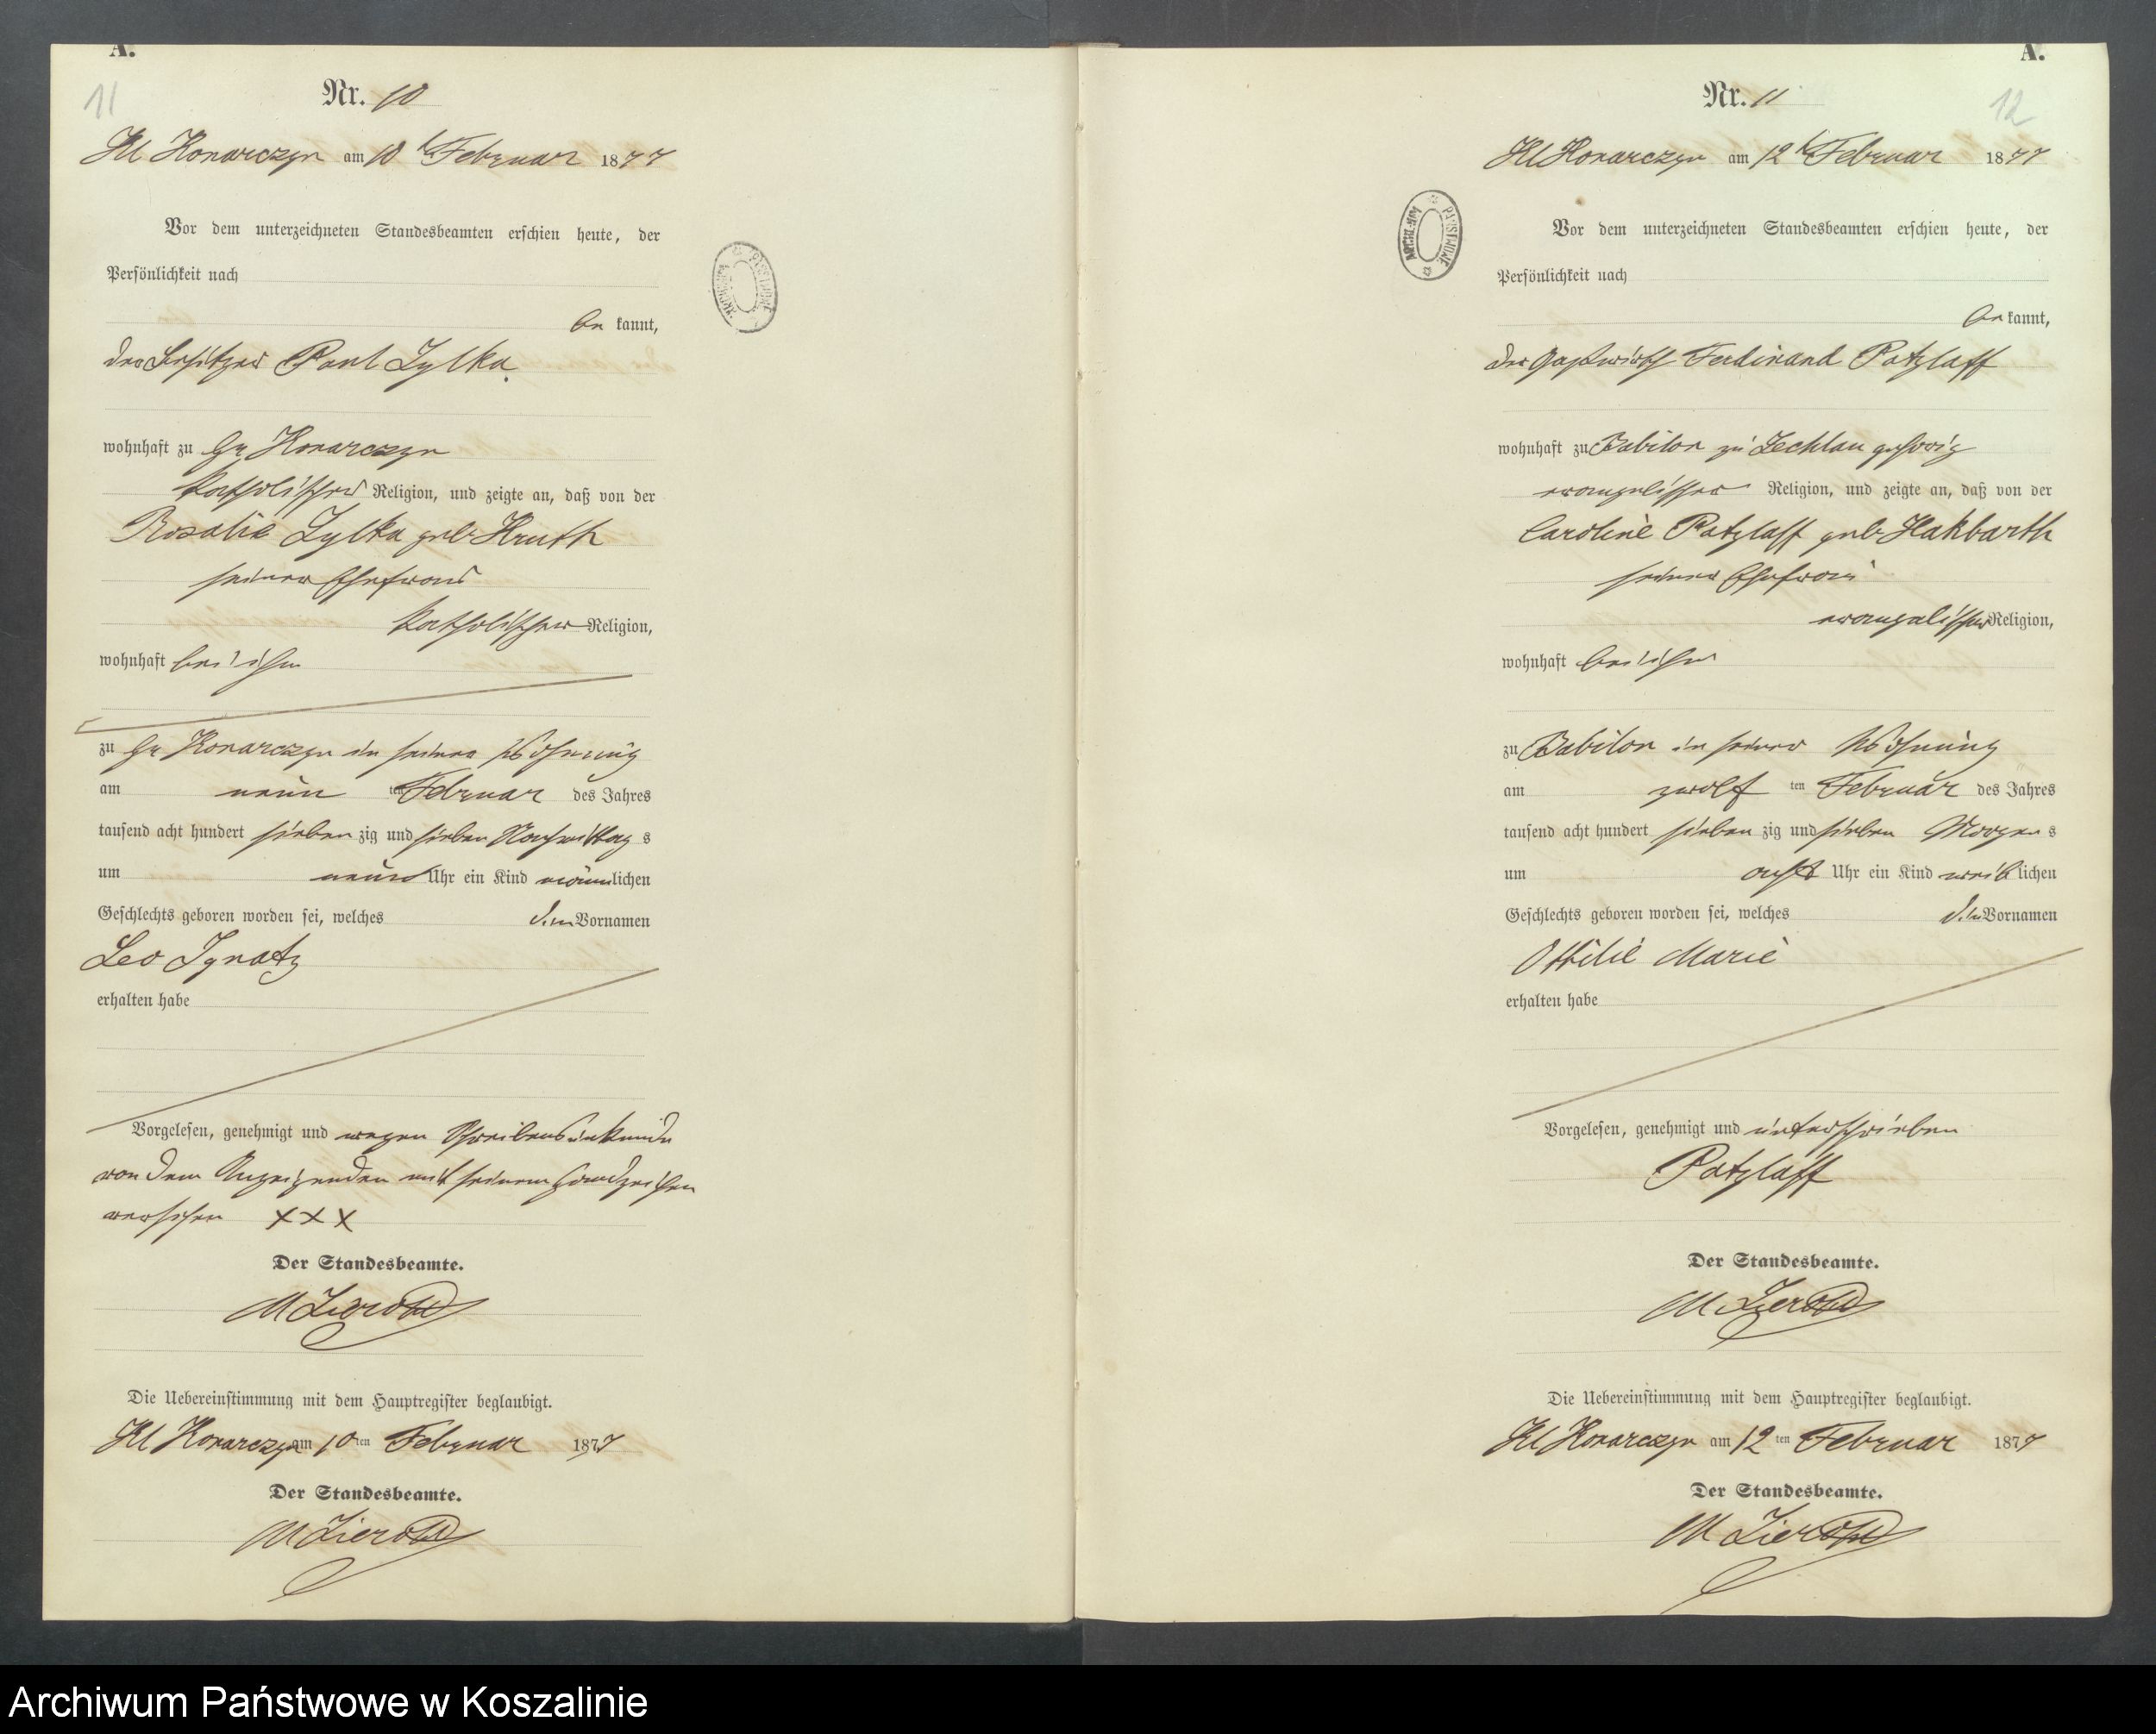 A.
11
Nr. 10
Kl Konarczyn am 10 t Februar 1877
Vor dem unterzeichneten Standesbeamten erschien heute, der
Persönlichkeit nach
be kannt,
der Besitzer Paul Zylka
wohnhaft zu Gr Konarczyn
katholischer Religion, und zeigte an, daß von der
Rosalie Zylka geb Hruth
seiner Ehefrau
katholischer Religion,
wohnhaft bei ihm
zu Gr Konarczyn in seiner Wohnung
am neun ten Februar des Jahres
tausend acht hundert sieben zig und sieben Nachmittag s
um neun Uhr ein Kind männlichen
Geschlechts geboren worden sei, welches den Vornamen
Leo Ignatz
erhalten habe
Vorgelesen, genehmigt und wegen Schreibensunkunde
von dem Anzeigenden mit seinem Handzeichen
versehen XXX
Der Standesbeamte.
M Zieroth
Die Uebereinstimmung mit dem Hauptregister beglaubigt.
Kl Konarczyn am 10 ten Februar 1877
Der Standesbeamte.
M Zieroth
ARCHIWUM PAŃSTWOWE
A.
12
Nr. 11
Kl Konarczyn am 12 t Februar 1877
Vor dem unterzeichneten Standesbeamten erschien heute, der
Persönlichkeit nach
be kannt,
der Gastwirth Ferdinand Patzlaff
wohnhaft zu Babilon zu Zechlau gehörig
evangelischer Religion, und zeigte an, daß von der
Caroline Patzlaff geb Hakbarth
seiner Ehefrau
evangelischer Religion,
wohnhaft bei ihm
zu Babilon in seiner Wohnung
am zwölf ten Februar des Jahres
tausend acht hundert sieben zig und sieben Morgen s
um acht Uhr ein Kind weib lichen
Geschlechts geboren worden sei, welches den Vornamen
Ottilie Marie
erhalten habe
Vorgelesen, genehmigt und unterschrieben
Patzlaff
Der Standesbeamte.
M Zieroth
Die Uebereinstimmung mit dem Hauptregister beglaubigt.
Kl Konarczyn am 12 ten Februar 1877
Der Standesbeamte.
M Zieroth
ARCHIWUM PAŃSTWOWE
Archiwum Państwowe w Koszalinie